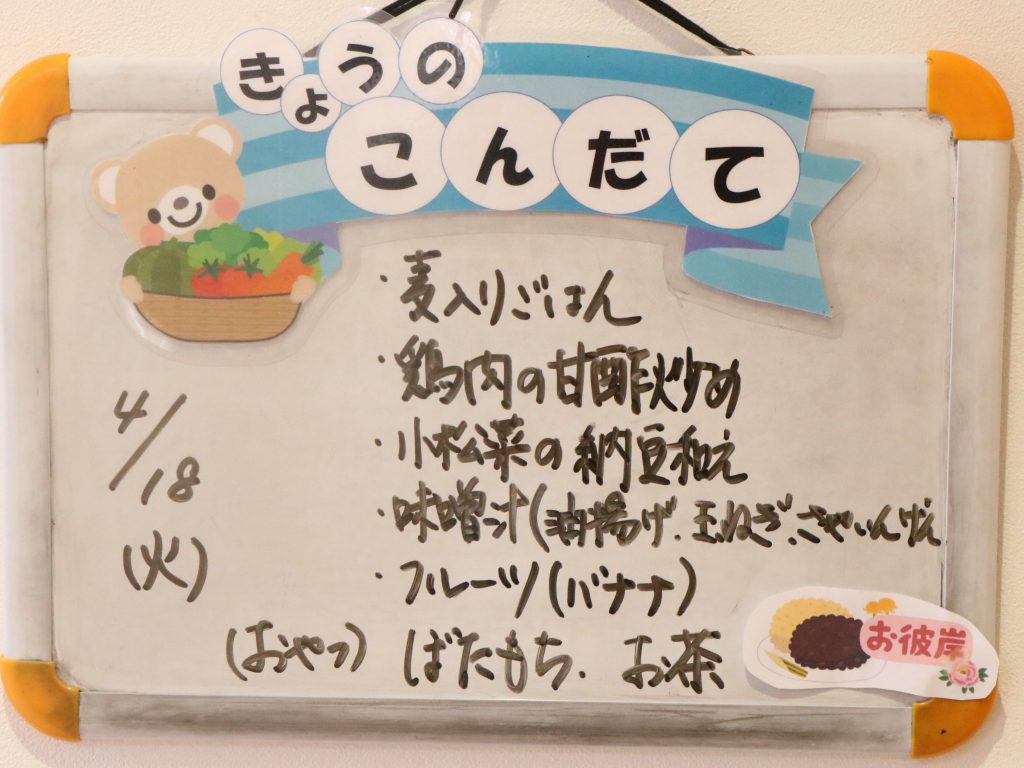 きょうの
こんだて
4/18
(火)
・麦入りごはん
・鶏肉の甘酢炒め
・小松菜の納豆和え
・味噌汁(油揚げ、玉ねぎ、さやいんげん
・フルーツ(バナナ)
(おやつ) ぼたもち、お茶
お彼岸